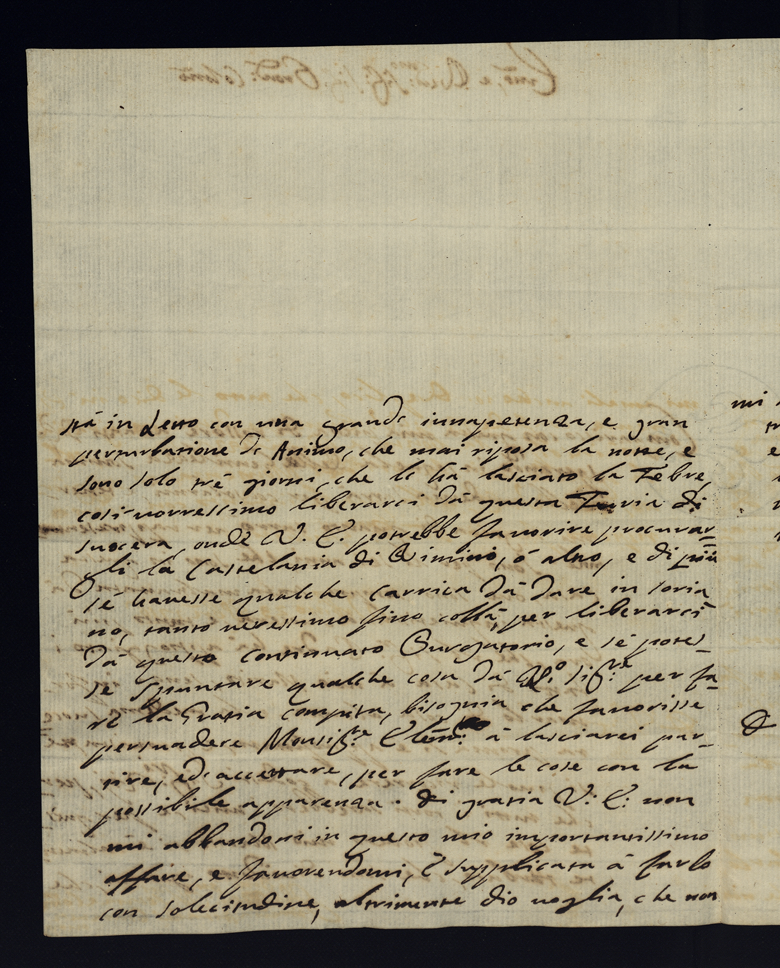 stà in Letto con una grande innapetenza, e gran
perturbatione di Animo, che mai riposa la notte, e
sono solo trè giorni, che li hà lasciato la Febre,
così vorressimo liberarci dà questa Furia di
suocera, onde V. E. potrebbe favorire procurar=
gli la Castelania di Rimini, ò altro, e di più
sé havesse qualche carrica dà dare in
no, tanto veressimo sino collà, per liberarci
dà questo continuato Purgatorio, e sé potes=
se spuntare qualche cosa dà per fa=
re la Gratia compita, bisognia che favorisse
persuadere Monsig.re à lasciarci par=
tire, ed accettare, per fare le cose con la
possibile apparenza. di gratia V. E. non
mi abbandoni in questo mio importantissimo
affare, e favorendomi, è supplicata à farlo
con solecitudine, altrimente dio voglia, che non
mi